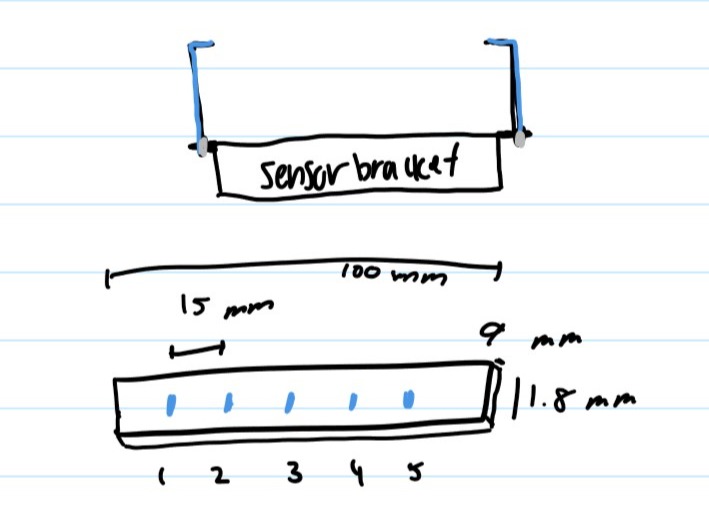 sensor bracket
100 mm
15 mm
9 mm
11.8 mm
1 2 3 4 5